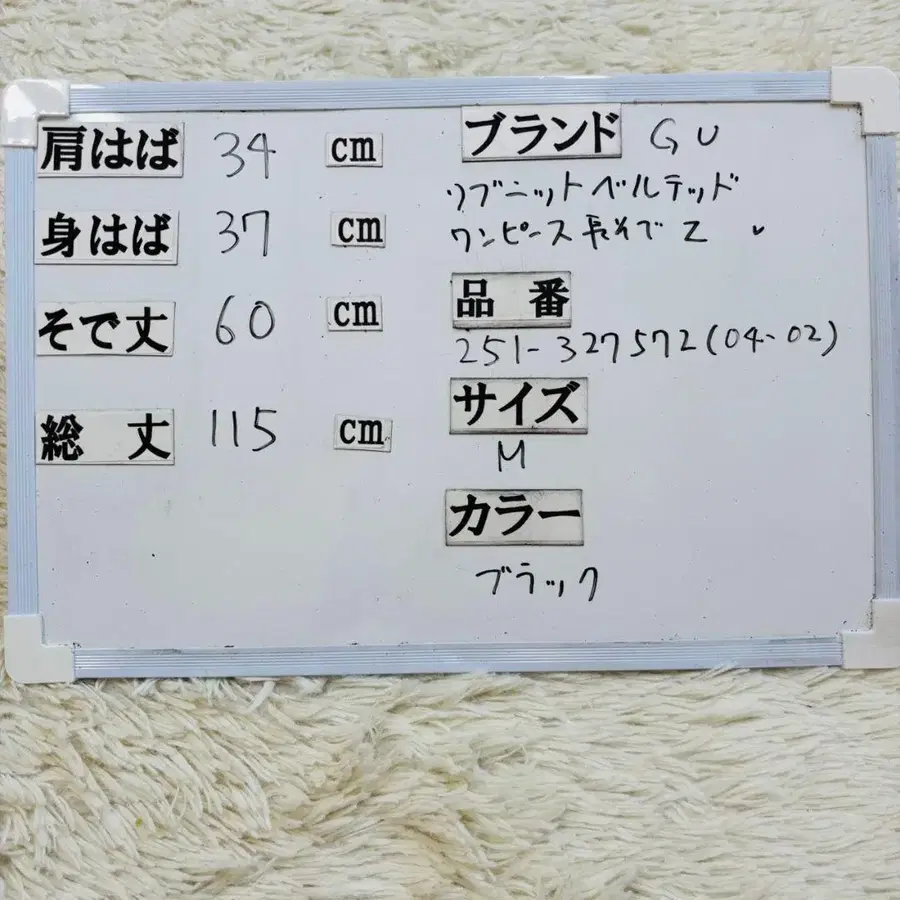 肩はば 34 cm
身はば 37 cm
そで丈 60 cm
総丈 115 cm
ブランド GU
リブニットベルテッド
ワンピース長そでZ
品番
251-327572(04-02)
サイズ
M
カラー
ブラック